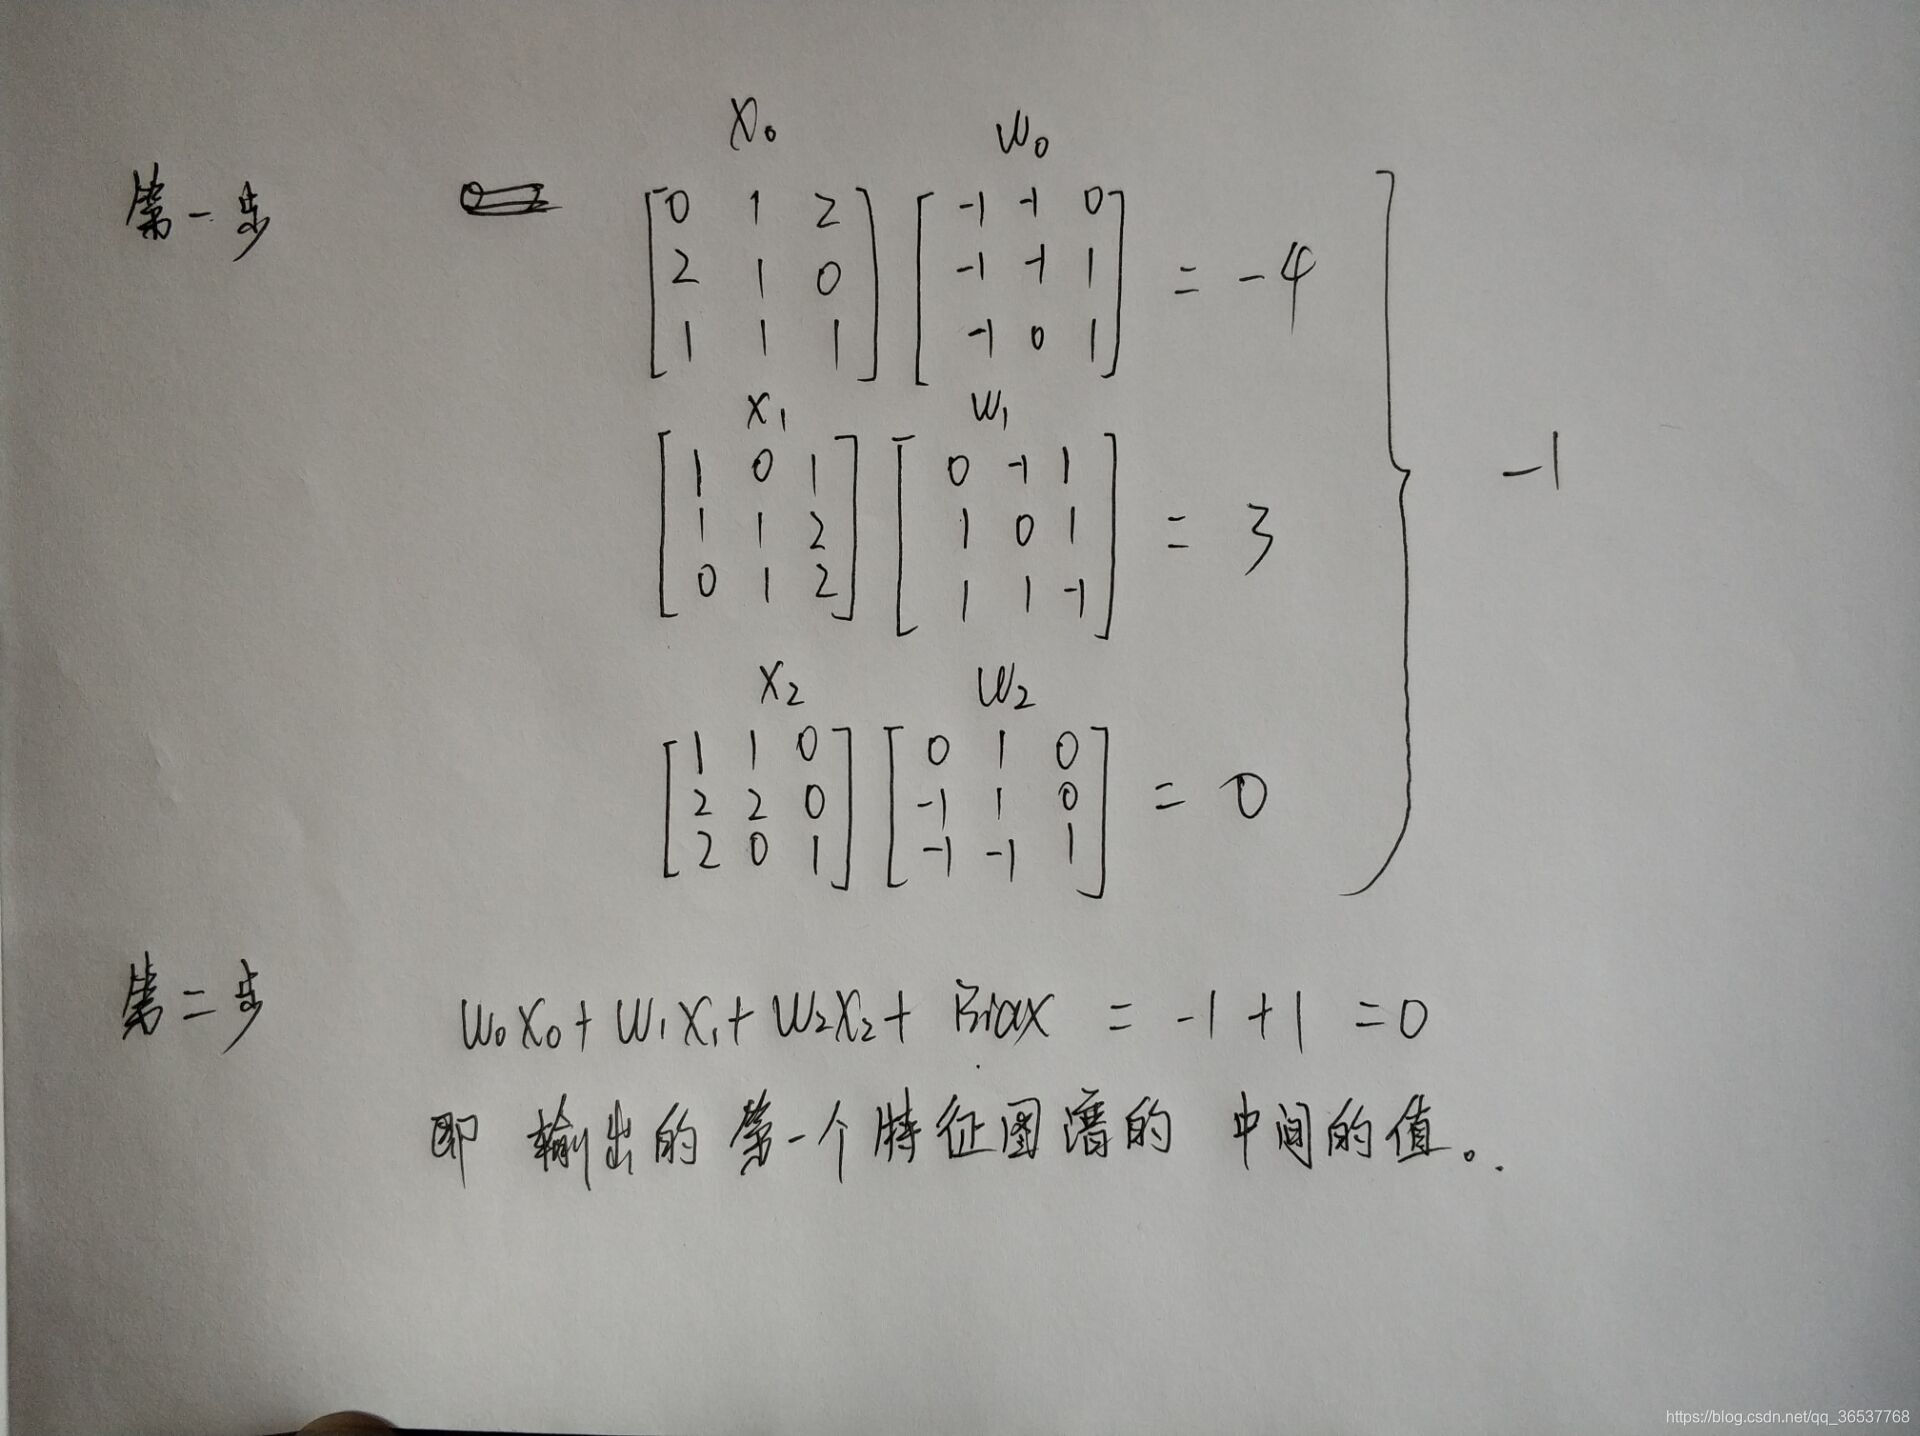 第一步
X₀ W₀
[0 1 2] [-1 -1 0]
[2 1 0] [-1 -1 1] = -4
[1 1 1] [-1 0 1]
X₁ W₁
[1 0 1] [0 -1 1] -1
[1 1 2] [1 0 1] = 3
[0 1 2] [1 1 -1]
X₂ W₂
[1 1 0] [0 1 0]
[2 2 0] [-1 1 0] = 0
[2 0 1] [-1 -1 1]
第二步 W₀X₀+W₁X₁+W₂X₂+Biax = -1+1 =0
即 输出的第一个特征图谱的 中间的值。
https://blog.csdn.net/qq_36537768